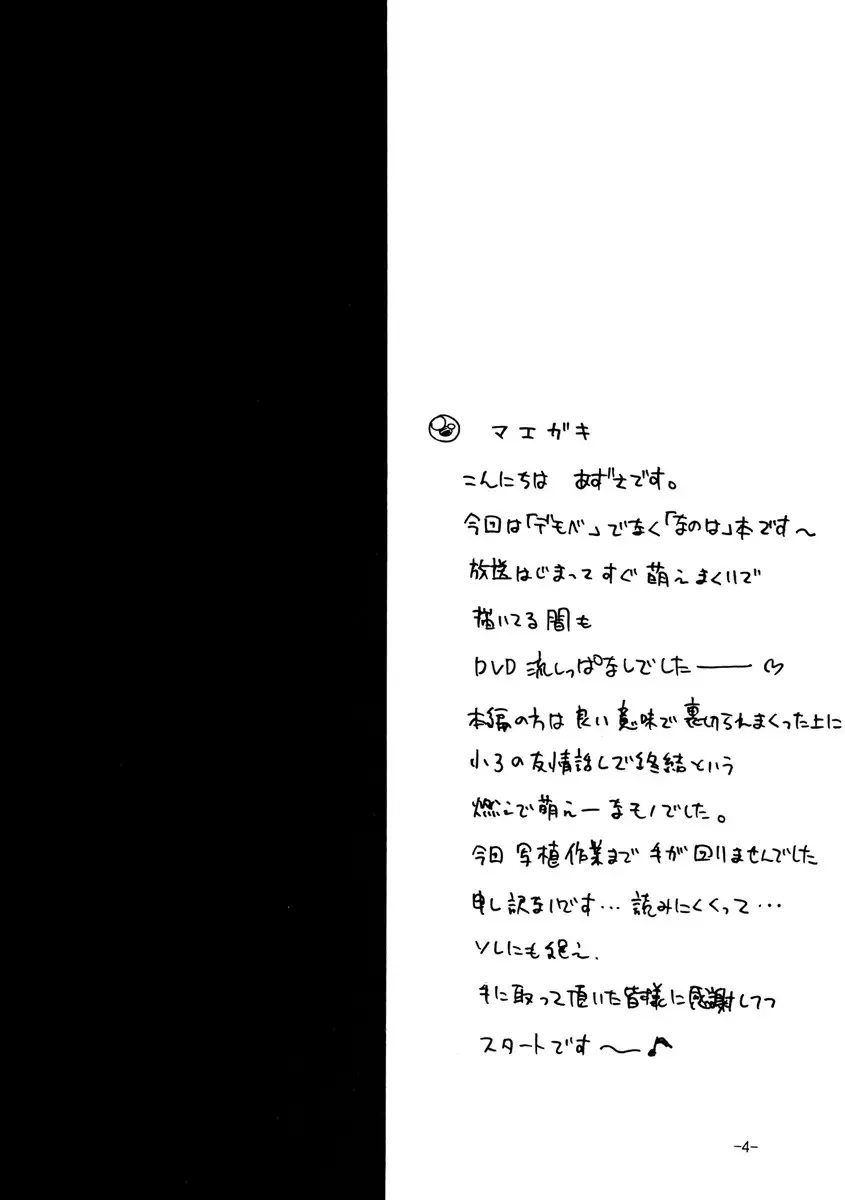 マエガキ
こんにちは あずえです。
今回は「デモベ」でなく「なのは」本です～
放送はじまってすぐ萌えまくりで
描いてる間も
DVD流しっぱなしでした――♡
本編の方は良い意味で裏切られまくった上に
小3の友情話しで終結という
燃えで萌えーなモノでした。
今回 写植作業まで 手が回りませんでした
申し訳ないです…読みにくくって…
ソレにも絶え、
手に取って頂いた皆様に感謝しつつ
スタートです～♪
-4-